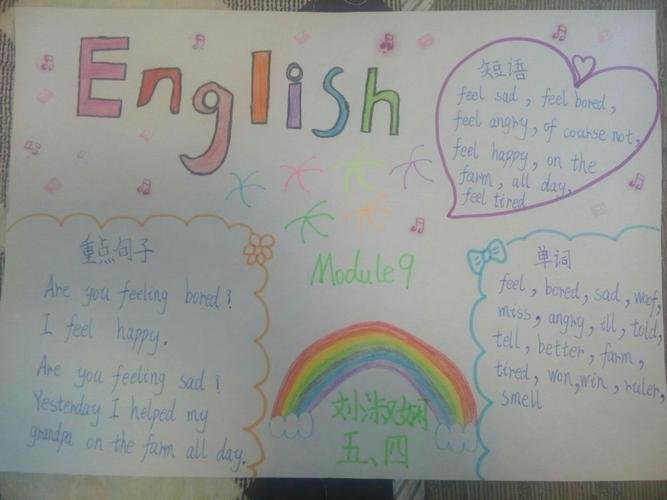 English
短语
feel sad, feel bored,
feel angry, of course not,
feel happy, on the
farm, all day,
feel tired
重点句子
Are you feeling bored?
I feel happy.
Are you feeling sad?
Yesterday I helped my
grandpa on the farm all day.
Module 9
刘淑娴
五、四
单词
feel, bored, sad, woof,
miss, angry, ill, told,
tell, better, farm,
tired, won, win, ruler,
smell